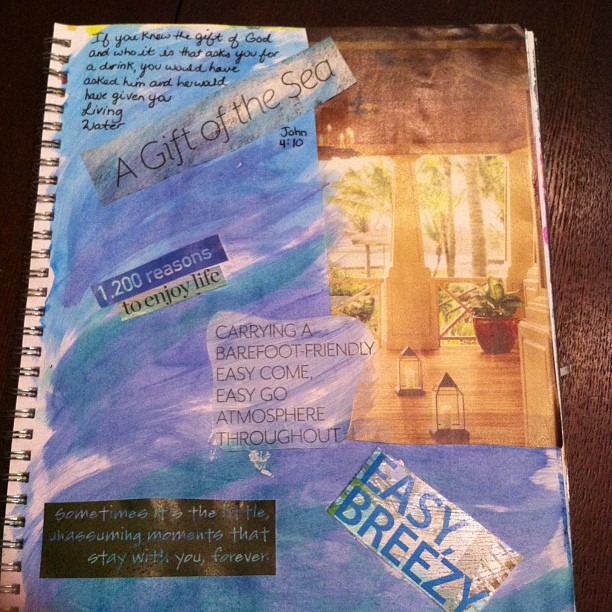 If you knew the gift of God
and who it is that asks you for
a drink, you would have
asked him and he would
have given you
Living
Water
John
4:10
A Gift of the Sea
1,200 reasons
to enjoy life
CARRYING A
BAREFOOT-FRIENDLY
EASY COME,
EASY GO
ATMOSPHERE
THROUGHOUT
Sometimes it's the little,
unassuming moments that
stay with you, forever.
EASY,
BREEZY